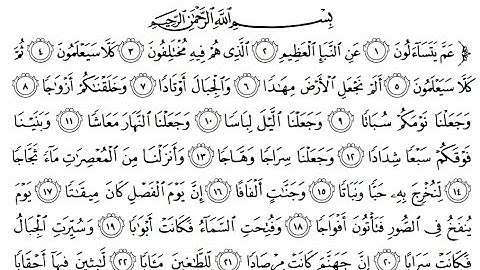 بِسْمِ اللَّهِ الرَّحْمَٰنِ الرَّحِيمِ
﴿ عَمَّ يَتَسَاءَلُونَ ١ عَنِ النَّبَإِ الْعَظِيمِ ٢ الَّذِي هُمْ فِيهِ مُخْتَلِفُونَ ٣ كَلَّا سَيَعْلَمُونَ ٤ ثُمَّ
كَلَّا سَيَعْلَمُونَ ٥ أَلَمْ نَجْعَلِ الْأَرْضَ مِهَادًا ٦ وَالْجِبَالَ أَوْتَادًا ٧ وَخَلَقْنَاكُمْ أَزْوَاجًا ٨
وَجَعَلْنَا نَوْمَكُمْ سُبَاتًا ٩ وَجَعَلْنَا اللَّيْلَ لِبَاسًا ١٠ وَجَعَلْنَا النَّهَارَ مَعَاشًا ١١ وَبَنَيْنَا
فَوْقَكُمْ سَبْعًا شِدَادًا ١٢ وَجَعَلْنَا سِرَاجًا وَهَّاجًا ١٣ وَأَنزَلْنَا مِنَ الْمُعْصِرَاتِ مَاءً ثَجَّاجًا
١٤ لِنُخْرِجَ بِهِ حَبًّا وَنَبَاتًا ١٥ وَجَنَّاتٍ أَلْفَافًا ١٦ إِنَّ يَوْمَ الْفَصْلِ كَانَ مِيقَاتًا ١٧ يَوْمَ
يُنفَخُ فِي الصُّورِ فَتَأْتُونَ أَفْوَاجًا ١٨ وَفُتِحَتِ السَّمَاءُ فَكَانَتْ أَبْوَابًا ١٩ وَسُيِّرَتِ الْجِبَالُ
فَكَانَتْ سَرَابًا ٢٠ إِنَّ جَهَنَّمَ كَانَتْ مِرْصَادًا ٢١ لِلطَّاغِينَ مَآبًا ٢٢ لَابِثِينَ فِيهَا أَحْقَابًا